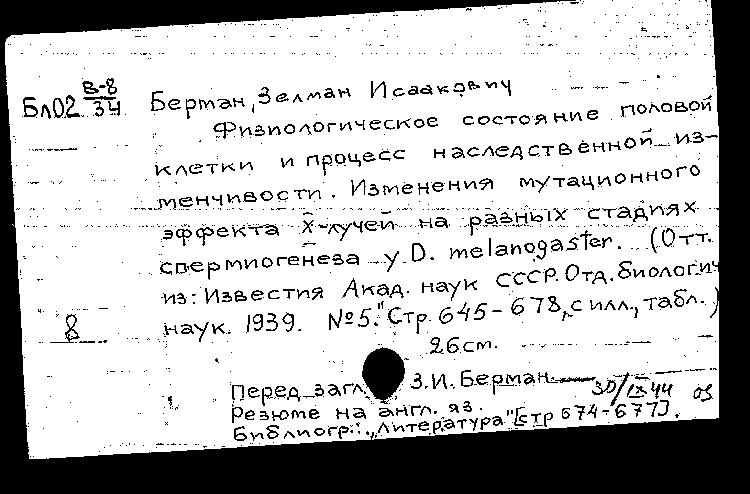 Бл02 В-8/34
Берман, Зелман Исаакович
Физиологическое состояние половой
клетки и процесс наследственной из-
менчивости. Изменения мутационного
эффекта X-лучей на разных стадиях
спермиогенеза у D. melanogaster. (Отт.
из: Известия Акад. наук СССР. Отд. биологич
наук. 1939. №5." Стр. 645-678, с илл., табл.)
8
26 см.
Перед загл. З.И. Берман
30/IX 44
Резюме на англ. яз.
Библиогр.: "Литература" [стр 674-677].